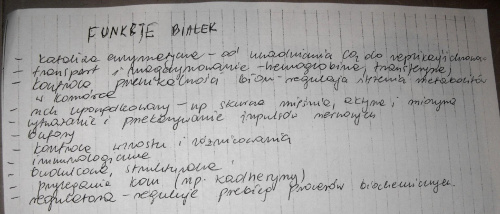 FUNKCJE BIAŁEK
- kataliza enzymatyczna - od uwadniania CO2 do replikacji chromos.
- transport i magazynowanie - hemoglobina, transferyna
- kontrola przenikalności błon - regulacja stężenia metabolitów
w komórce
- ruch uporządkowany - np skurcz mięśnia, aktyna i miozyna
- wytwarzanie i przekazywanie impulsów nerwowych
- bufory
- kontrola wzrostu i różnicowania
- immunologiczne
- budulcowa, strukturalna
- przyleganie kom (np. kadheryny)
- regulatorowa - reguluje przebieg procesów biochemicznych